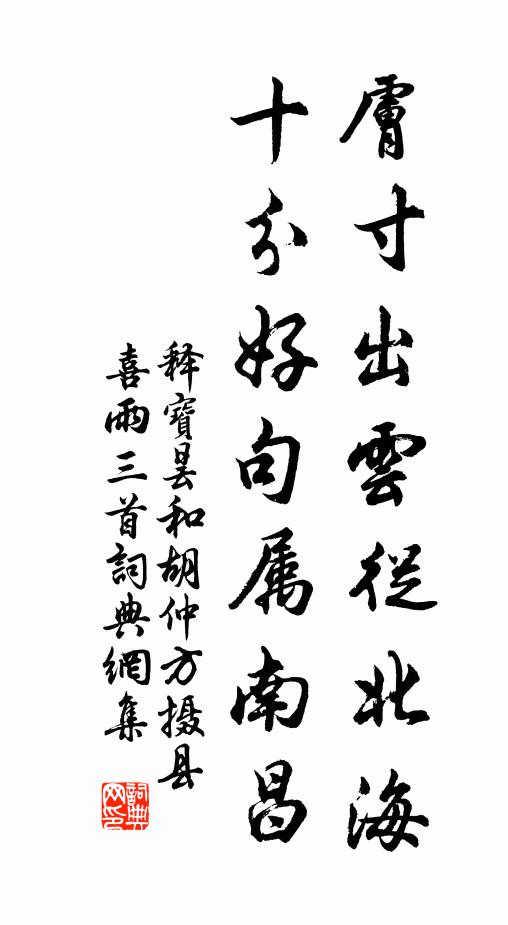 膚寸出雲從北海
十分好句属南昌
释寶昙和胡仲方摄县
喜雨三首詞典網集
詞典网印